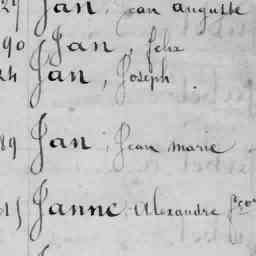 27 Jan, Jean auguste
90 Jan, felix
24 Jan, Joseph
89 Jan, Jean marie
Janne, Alexandre fçois